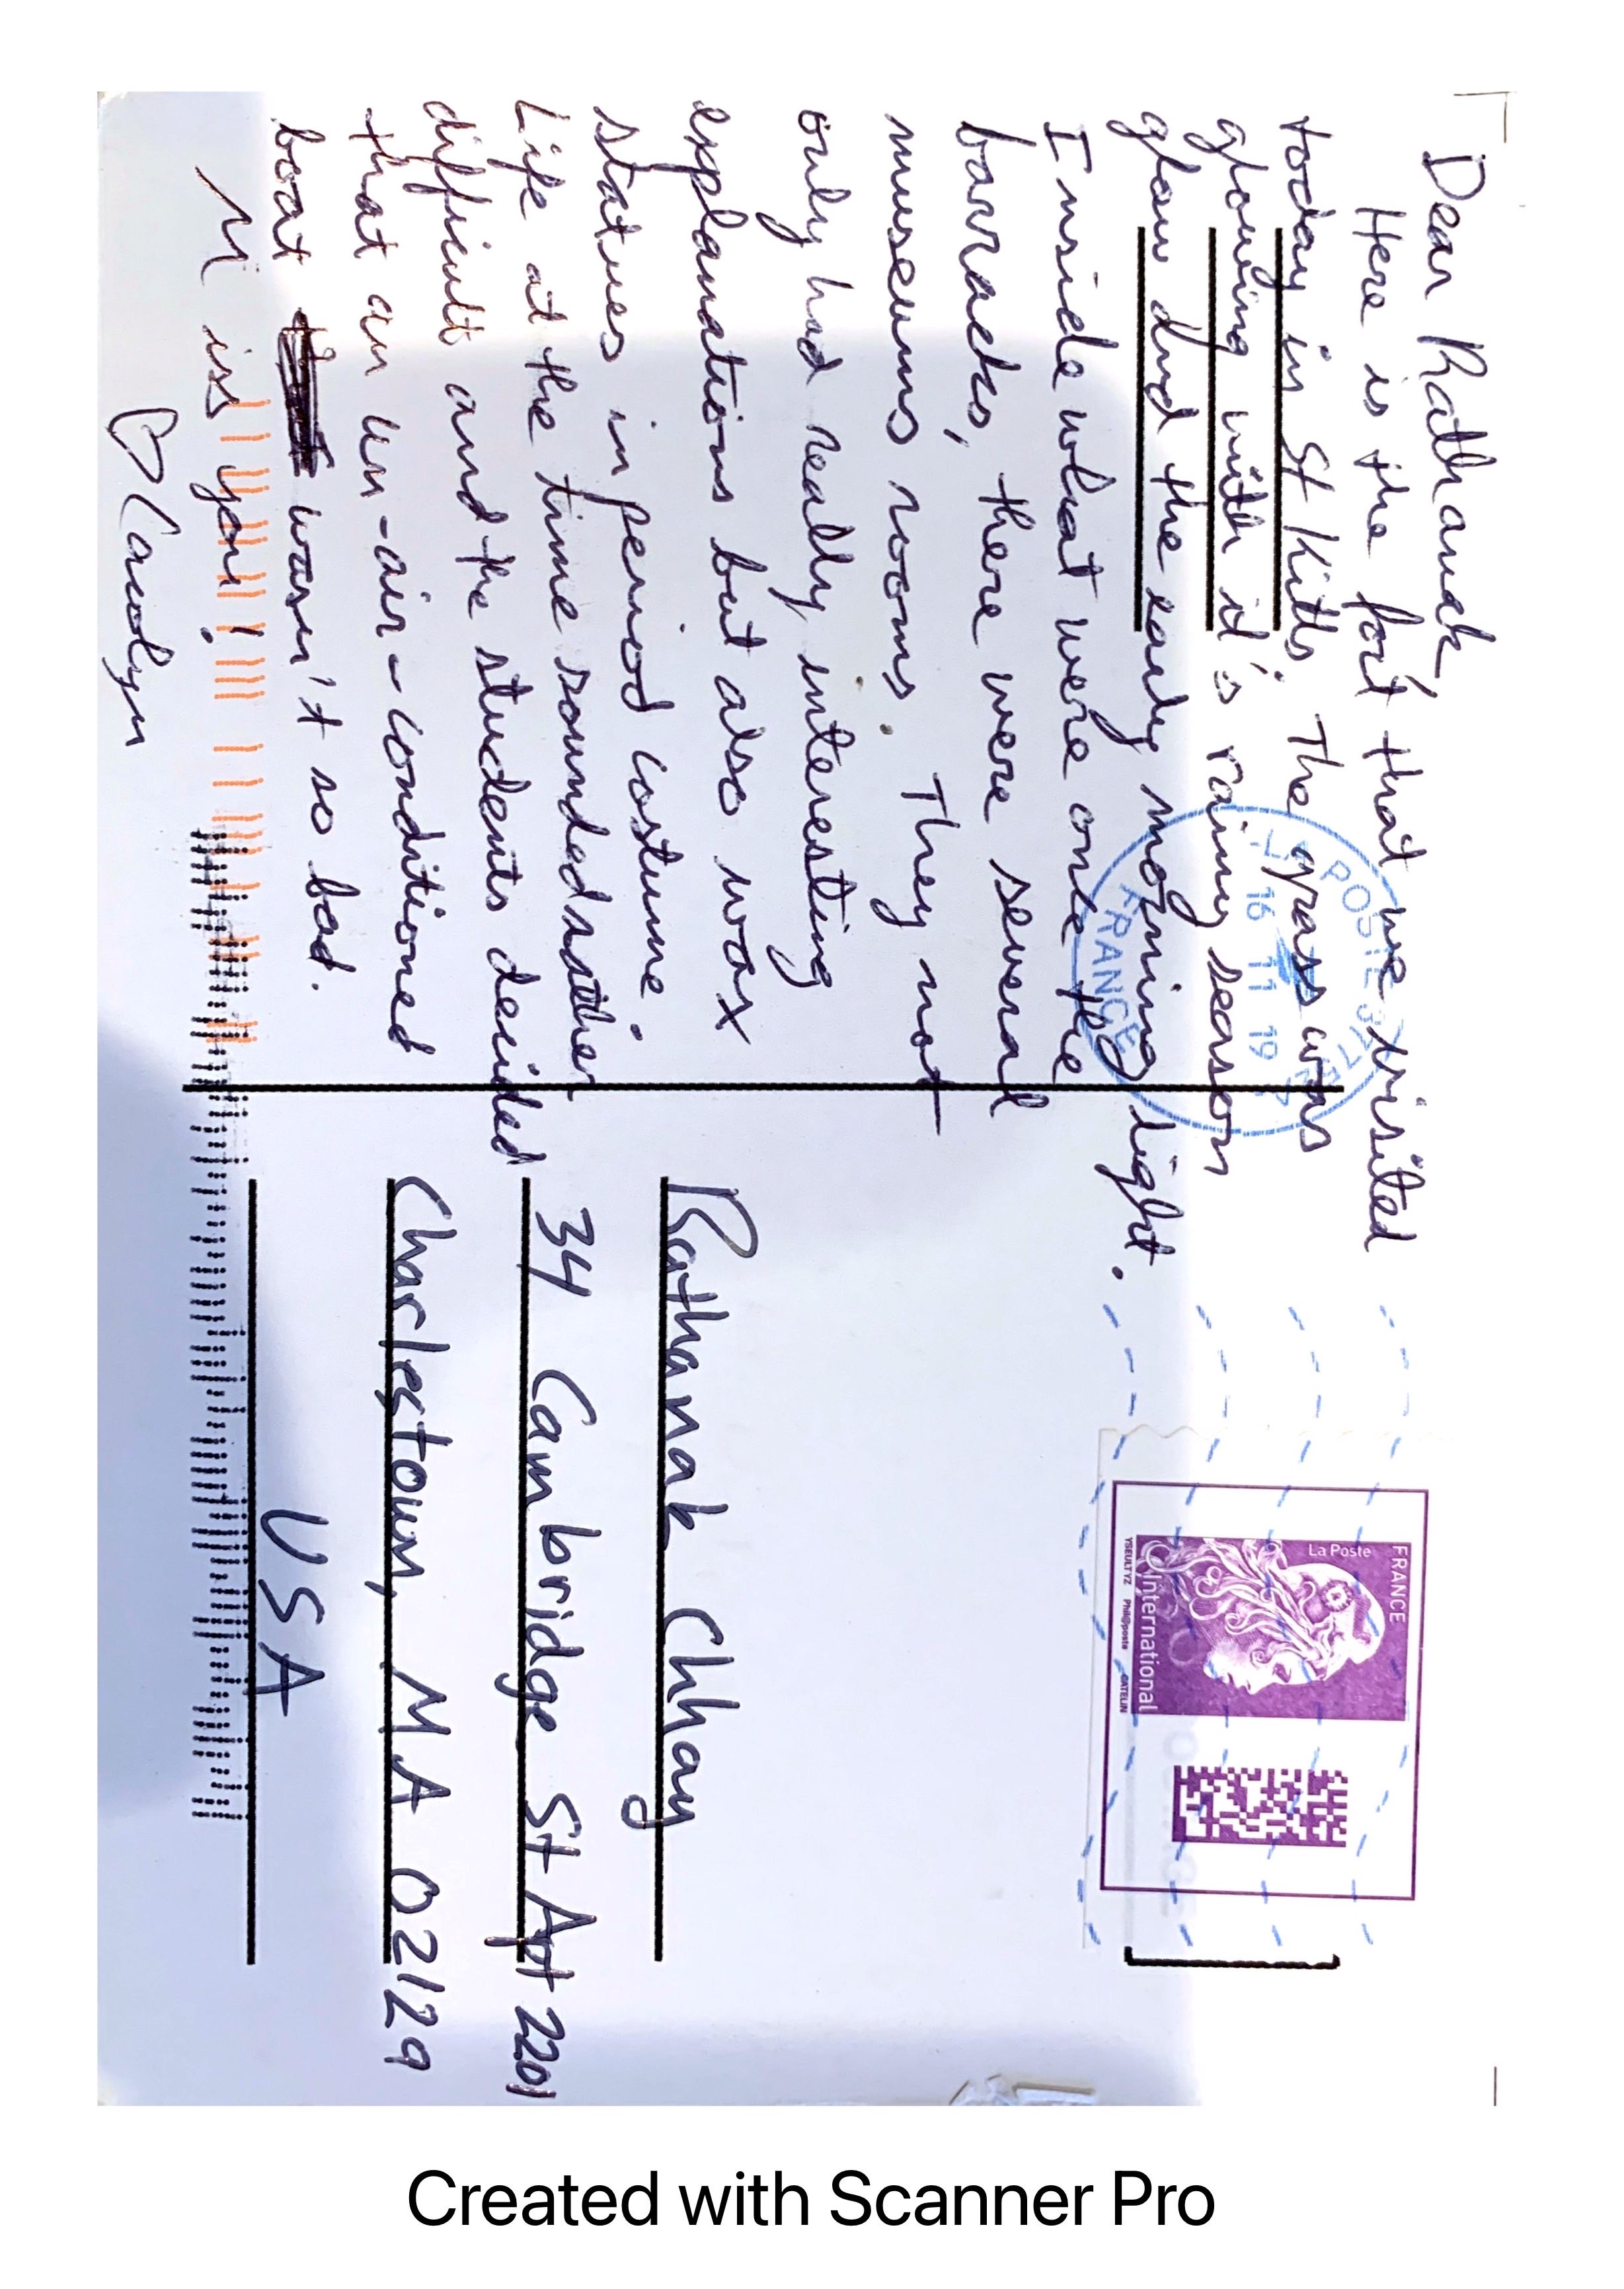 Dear Rathanak,
Here is the fort that we visited
today in St Kitts. The grass was
glowing with id's rainy season
glow and the early morning light.
Inside what were once the
barracks, there were several
museums rooms. They not
only had really interesting
explanations but also wax
statues in period costume.
Life at the time sounded rather
difficult and the students decided
that an un-air-conditioned
boat wasn't so bad.
Miss you!
♡ Carolyn
POSTE
16 11 19
FRANCE
FRANCE
La Poste
International
YSEULT YZ Phil@poste CATELIN
Rathanak Chhay
34 Cambridge St Apt 2201
Charlestown, MA 02129
USA
Created with Scanner Pro